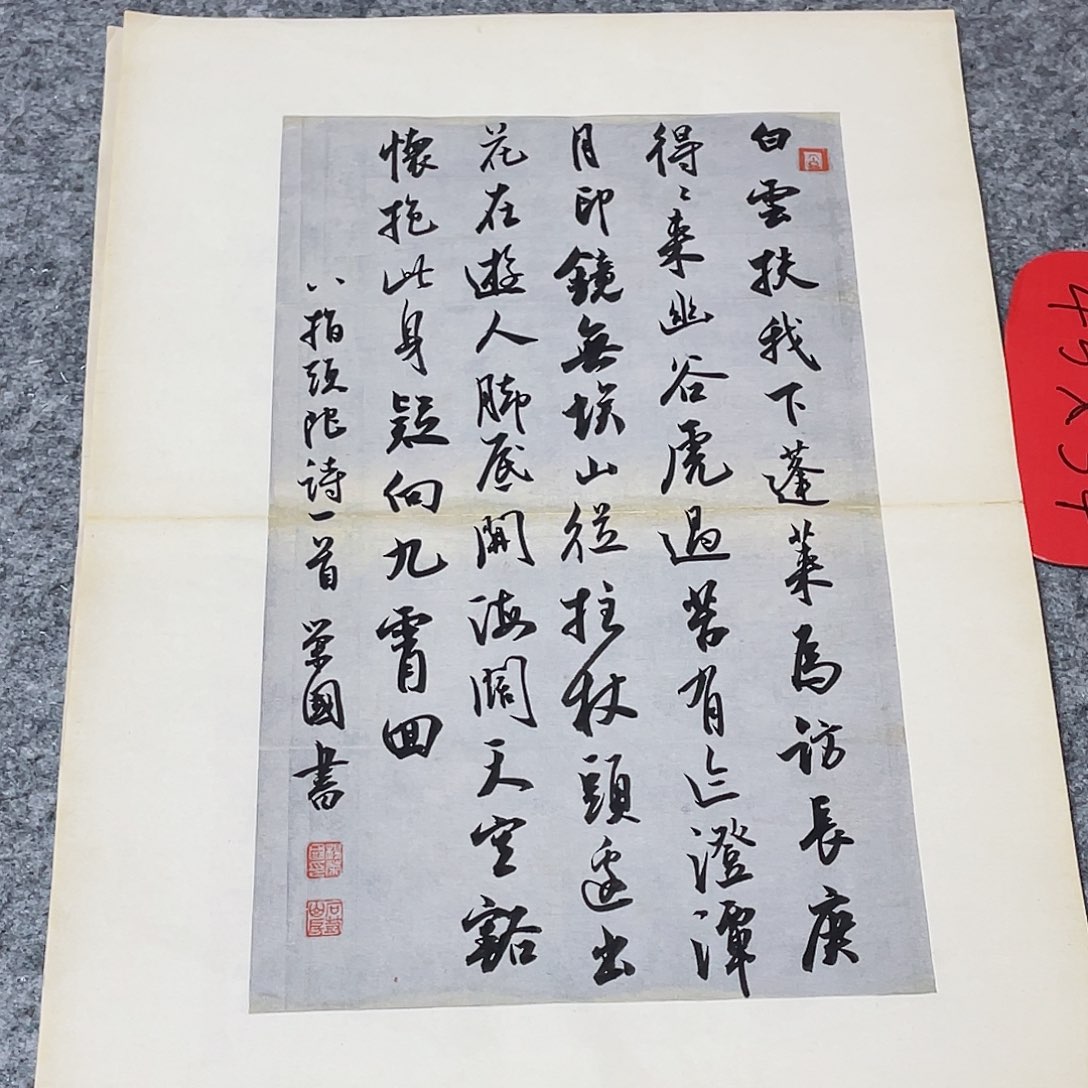 白雲扶我下蓬萊為訪長庚
得〻来幽谷虎過苔有迹澄潭
月印鏡無埃山從拄杖頭邊出
花在遊人脚底開海闊天空豁
懷抱此身疑向九霄回
八指頭陀詩一首 榮國書